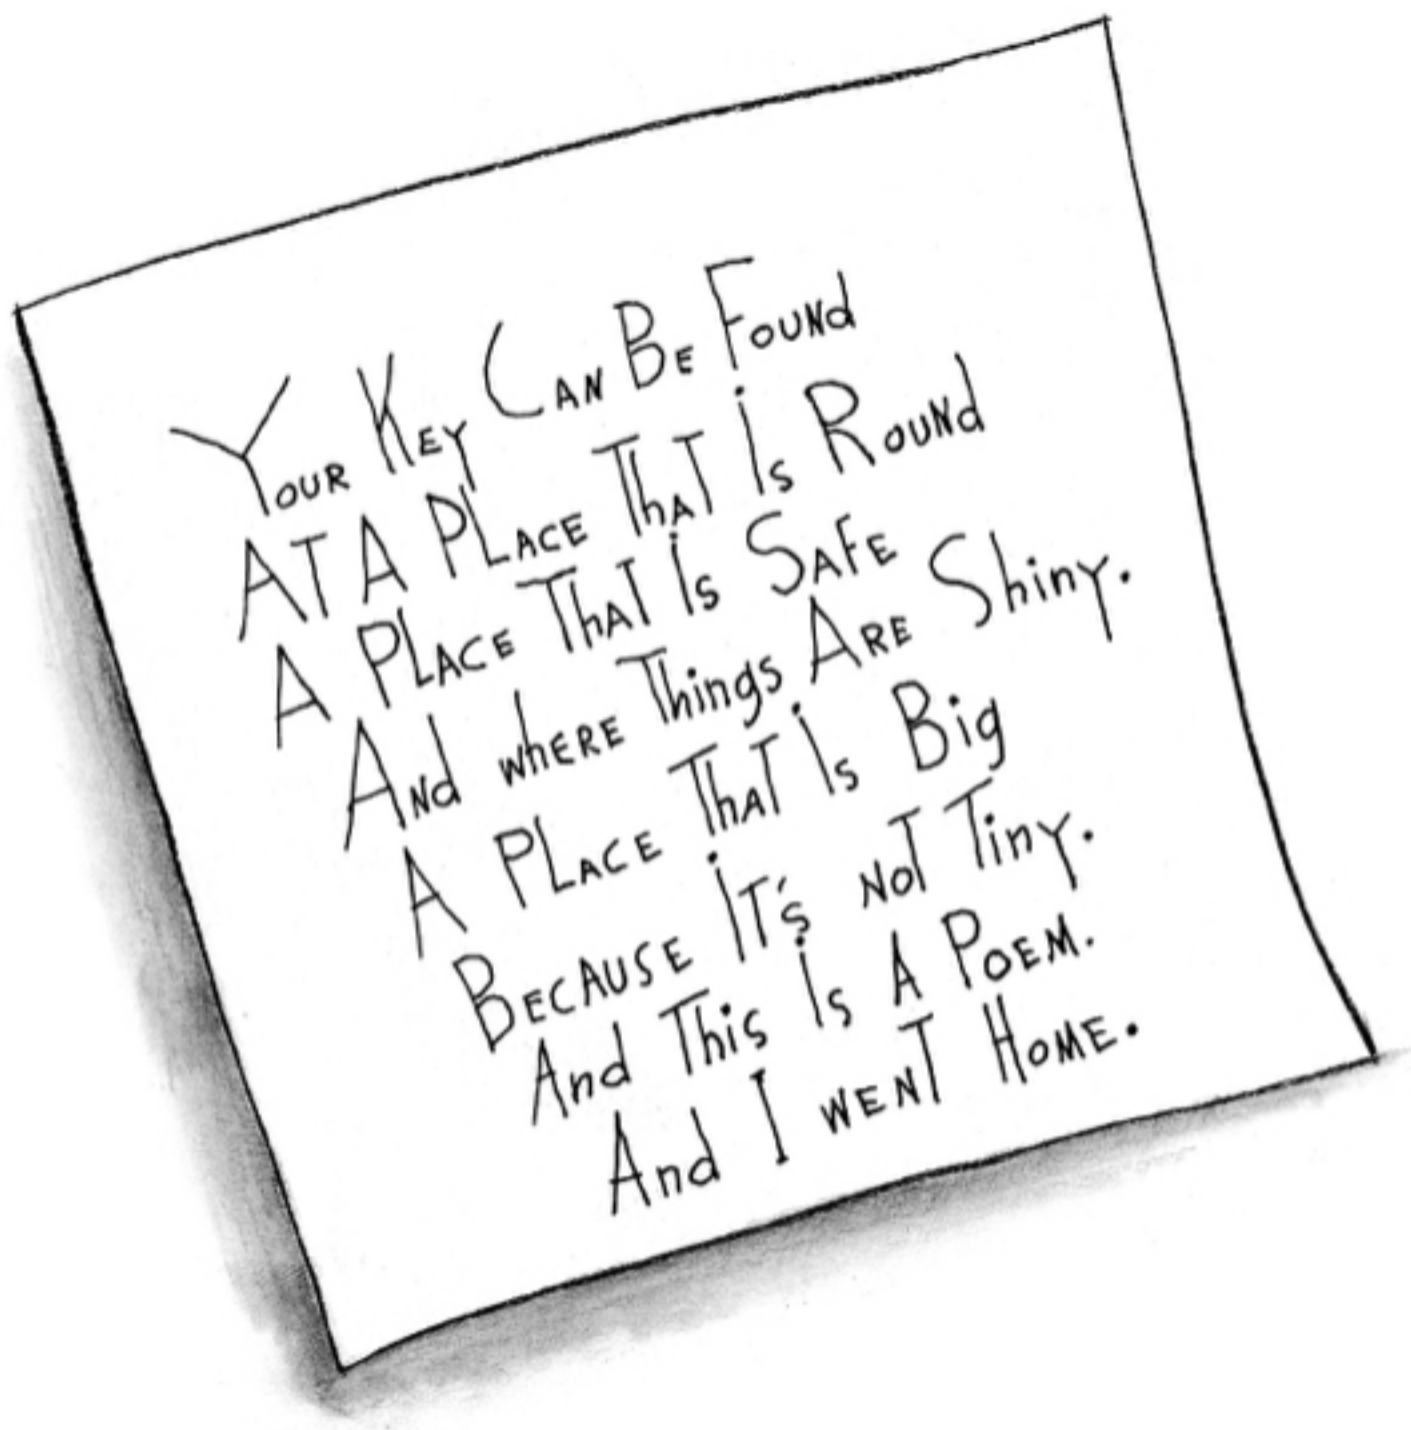 Your Key Can Be Found
At A Place That Is Round
A Place That Is Safe
And where Things Are Shiny.
A Place That Is Big
Because It's not Tiny.
And This Is A Poem.
And I went Home.